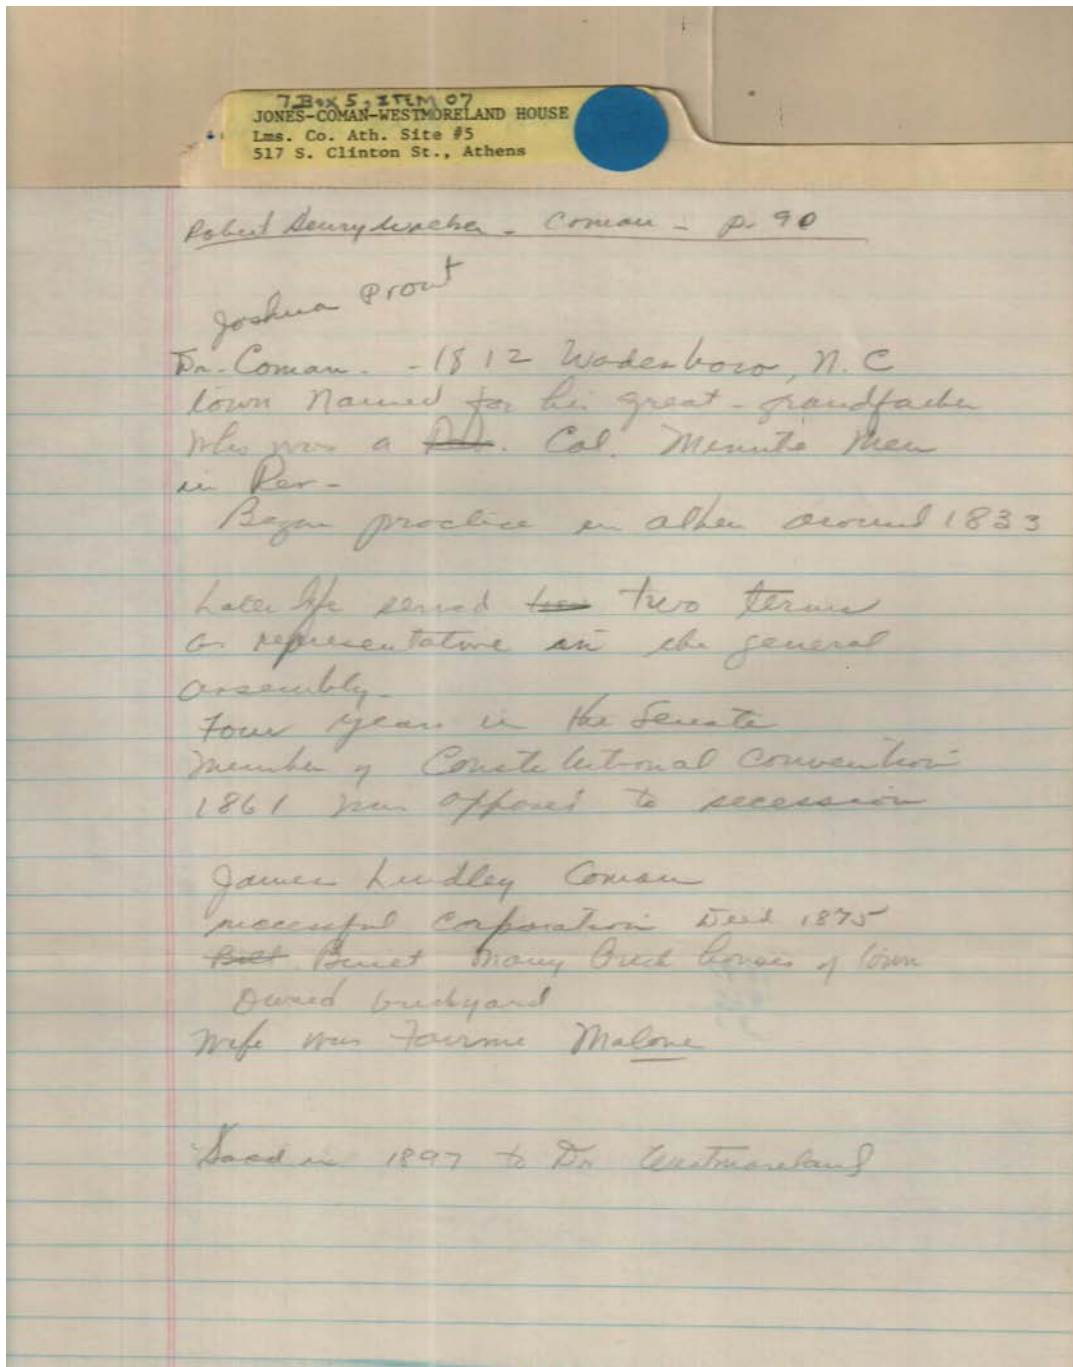 7 Box 5, ITEM 07
JONES-COMAN-WESTMORELAND HOUSE
Lms. Co. Ath. Site #5
517 S. Clinton St., Athens
Robert Henry Walker - Coman - p. 90
Joshua Prout
Dr. Coman. - 1812 Wadesboro, N.C
town Named for his great-grandfather
who was a Col. Minute Men
in Rev-
Began practice in Athen around 1833
Later life served two terms
as representative in the general
assembly-
Four years in the Senate
member of Constitutional Convention
1861 was opposed to secession
James Lindley Coman
successful corporation Died 1875
Buiet many brick houses of town
Owned brickyard
Wife was Malone
in 1897 to Dr Westmoreland